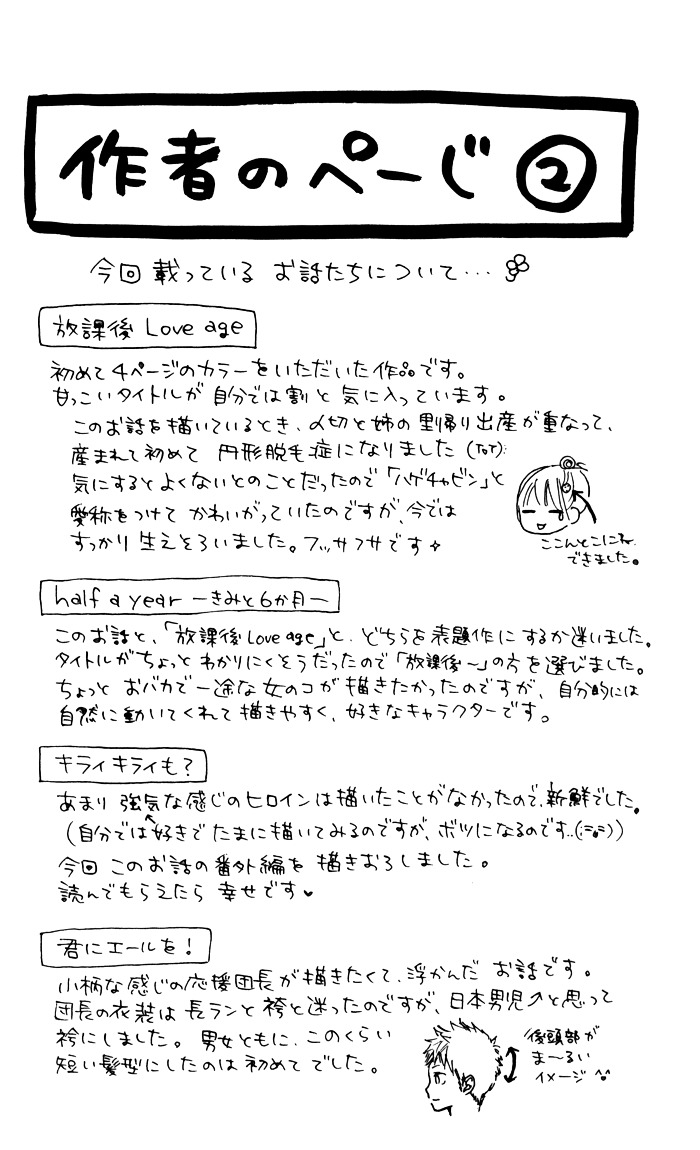 作者のページ②
今回載っているお話たちについて…
放課後 Love age
初めて4ページのカラーをいただいた作品です。
甘っこいタイトルが自分では割と気に入っています。
このお話を描いているとき、〆切と姉の里帰り出産が重なって、
産まれて初めて円形脱毛症になりました(ToT);
気にするとよくないとのことだったので「ハゲチャビン」と
愛称をつけてかわいがっていたのですが、今では
すっかり生えそろいました。フッサフサです
ここんとこにね、
できました。
half a year ーきみと6か月ー
このお話と、「放課後Love age」と、どちらを表題作にするか迷いました。
タイトルがちょっとわかりにくそうだったので「放課後～」の方を選びました。
ちょっとおバカで一途な女のコが描きたかったのですが、自分的には
自然に動いてくれて描きやすく、好きなキャラクターです。
キライキライも?
あまり強気な感じのヒロインは描いたことがなかったので、新鮮でした。
(自分では好きでたまに描いてみるのですが、ボツになるのです..
今回このお話の番外編を描きおろしました。
読んでもらえたら幸せです♥
君にエールを!
小柄な感じの応援団長が描きたくて、浮かんだお話です。
団長の衣装は長ランと袴と迷ったのですが、日本男児↗と思って
袴にしました。男女ともに、このくらい
短い髪型にしたのは初めてでした。
後頭部が
ま〜るい
イメージ